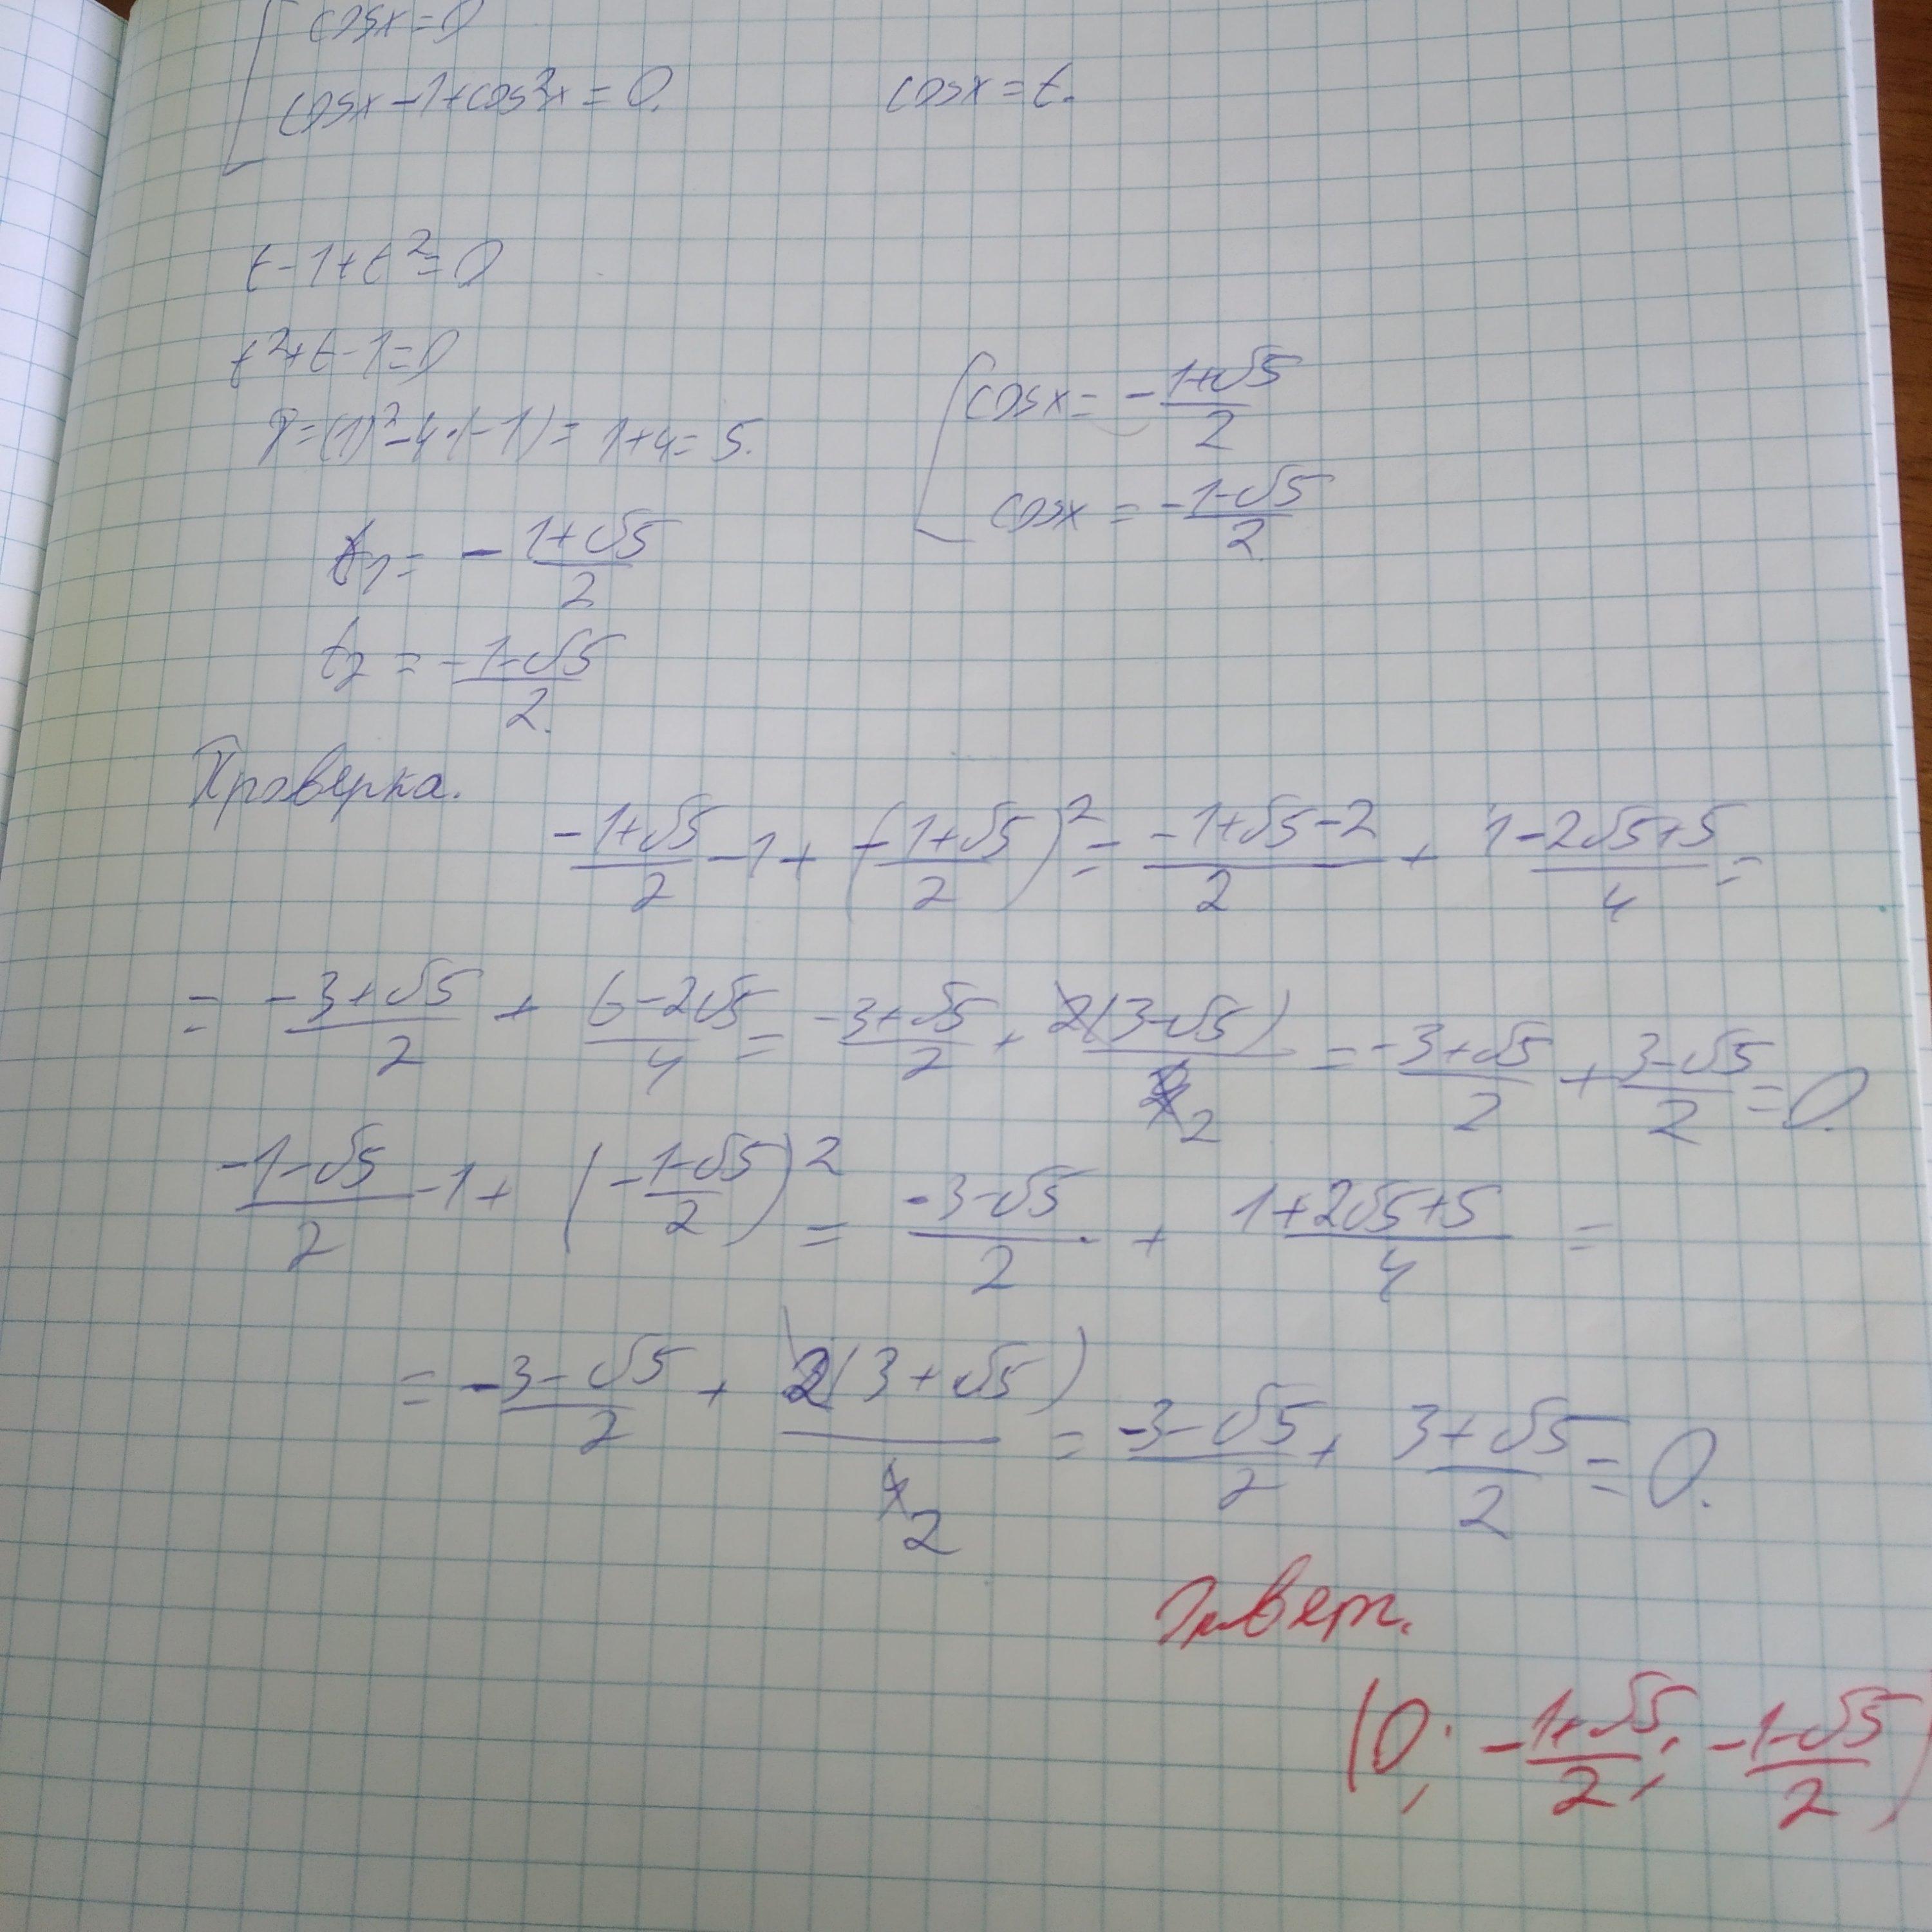 cosx=0
cosx-1+cos²x=0. cosx=t.
t-1+t²=0
t²+t-1=0
D=(1)²-4·(-1)=1+4=5.
t₁= -1+√5/2
t₂ = -1-√5/2.
[cosx= -1+√5/2
cosx = -1-√5/2.
Проверка.
-1+√5/2 -1+ (-1+√5/2)² = -1+√5-2/2 + 1-2√5+5/4 =
= -3+√5/2 + 6-2√5/4 = -3+√5/2 + 2(3-√5)/4 2 = -3+√5/2 + 3-√5/2 =0.
-1-√5/2 -1+ (-1-√5/2)² = -3-√5/2 + 1+2√5+5/4 =
= -3-√5/2 + 2(3+√5)/4 2 = -3-√5/2 + 3+√5/2 =0.
Ответ.
(0; -1+√5/2; -1-√5/2)